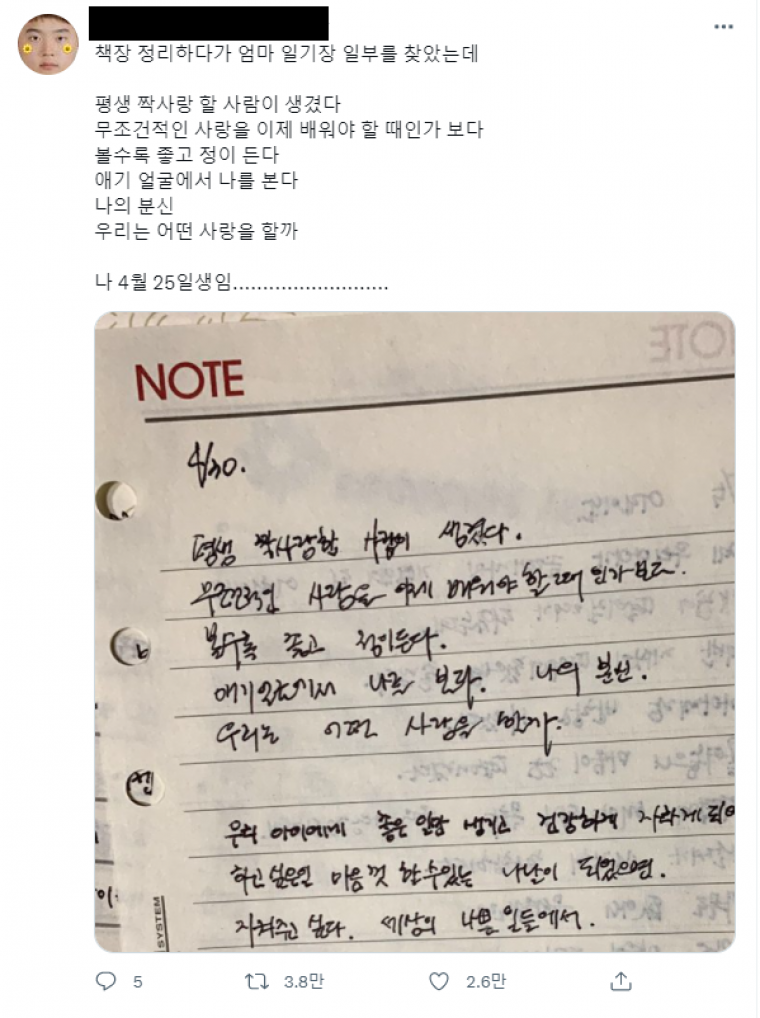 책장 정리하다가 엄마 일기장 일부를 찾았는데
평생 짝사랑 할 사람이 생겼다
무조건적인 사랑을 이제 배워야 할 때인가 보다
볼수록 좋고 정이 든다
애기 얼굴에서 나를 본다
나의 분신
우리는 어떤 사랑을 할까
나 4월 25일생임..........................
NOTE
4/30.
평생 짝사랑할 사람이 생겼다.
무조건적인 사랑을 이제 배워야 할 때인가보다.
볼수록 좋고 정이든다.
애기얼굴에서 나를 본다. 나의 분신.
우리는 어떤 사랑을 할까.
우리 아이에게 좋은 일만 생기고 건강하게 자라게 되어
하고싶은일 마음껏 할수있는 나날이 되었으면.
지켜주고 싶다. 세상의 나쁜 일들에서.
SYSTEM
5 3.8만 2.6만